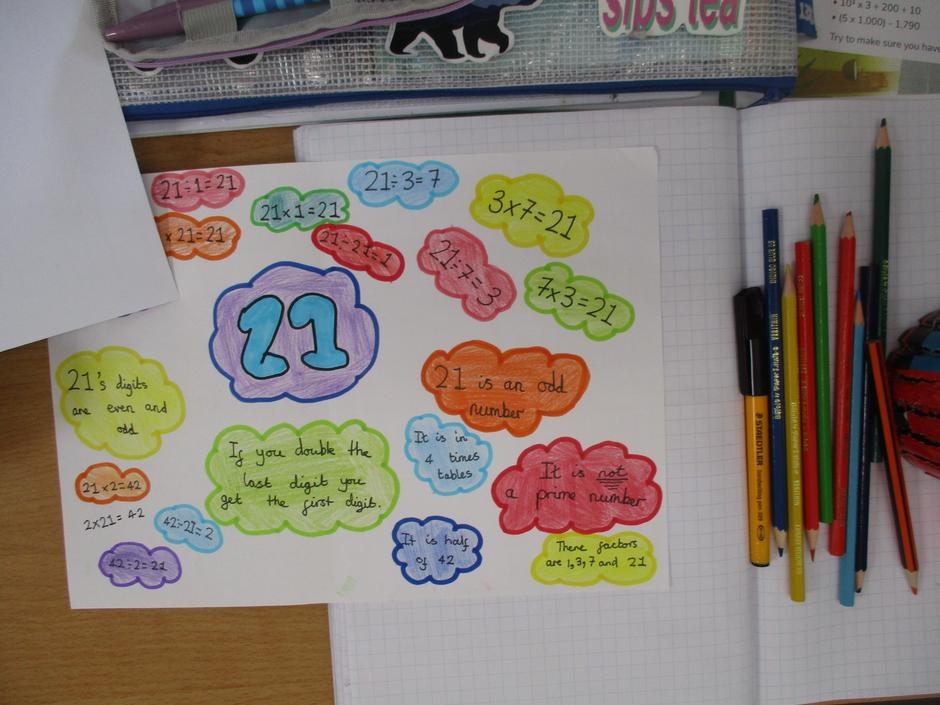 sips tea
• 10³ x 3 + 200 + 10
• (5 x 1,000) - 1,790
Try to make sure you have
21÷1=21
21x1=21
21÷3=7
3x7=21
x 21=21
21÷21=1
21÷7=3
7x3=21
21
21's digits
are even and
odd
21 is an odd
number
If you double the
last digit you
get the first digit.
It is in
4 times
tables
It is not
a prime number
21x2=42
2x21=42
42÷21=2
42÷2=21
It is half
of 42
There factors
are 1,3,7 and 21
STAEDTLER